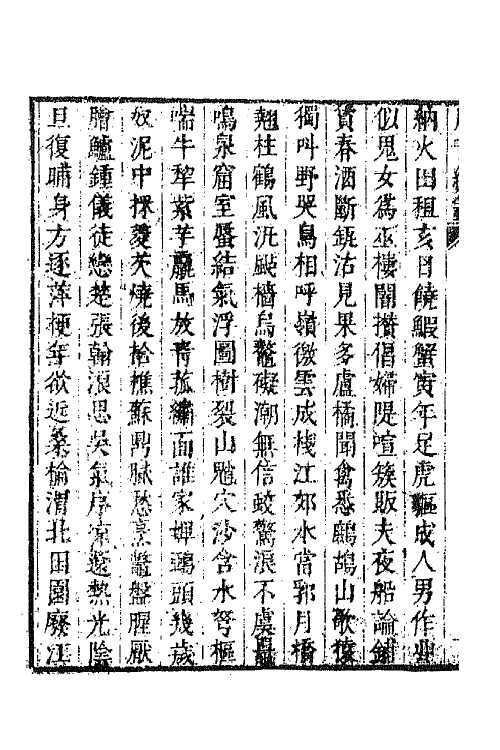 納火田租亥日饒鰕蟹寅年足虎貙成人男作丱
似鬼女為巫樓闇攢倡婦隄喧簇販夫夜船論鋪
賃春酒斷瓶沽見果多盧橘聞禽悉鷓鴣山歌猿
獨叫野哭鳥相呼嶺徼雲成棧江郊水當郛月橋
翹柱鶴風汎颭檣烏鼇礙潮無信蛟驚浪不虞鼉
鳴泉窟室蜃結氣浮圖樹裂山魈穴沙含水弩樞
喘牛犂紫芋羸馬放青菰繡面誰家婢鴉頭幾歲
奴泥中採菱芡燒後拾樵蘇鼎膩愁烹鼈盤腥厭
膾鱸鍾儀徒戀楚張翰浪思吳氣序涼還熱光陰
旦復晡身方逐萍梗年欲近桑榆渭北田園廢江